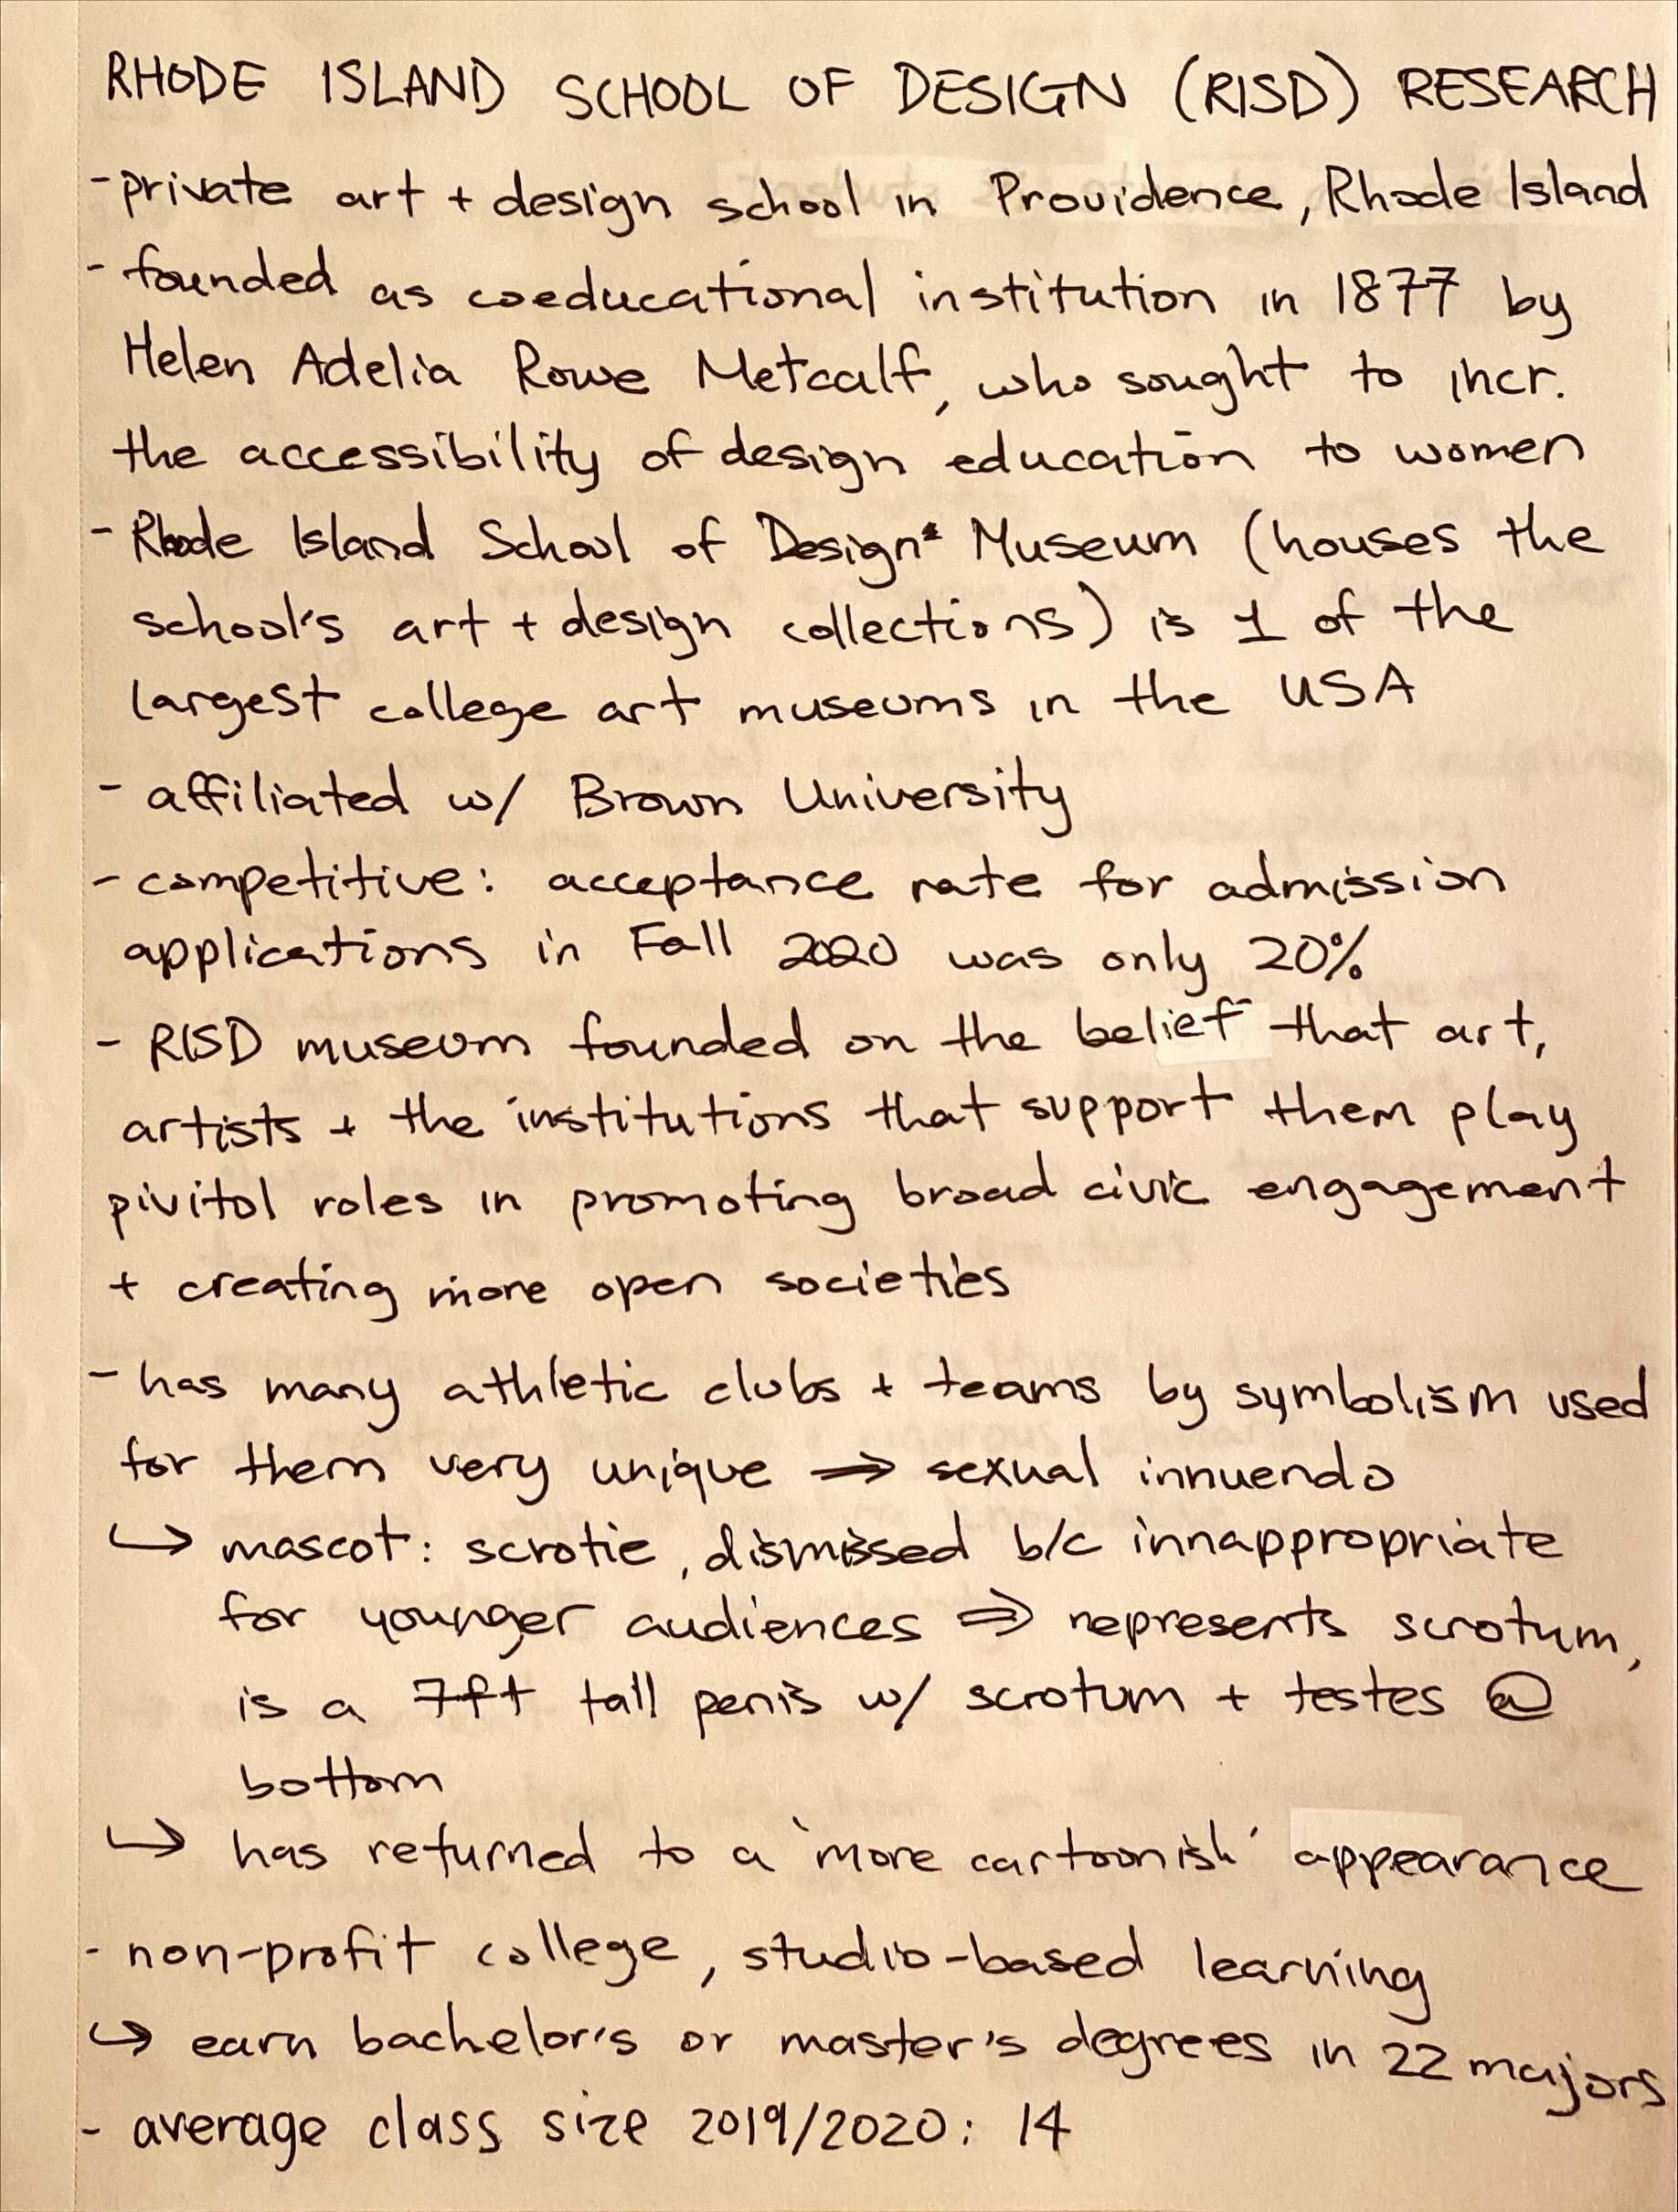 RHODE ISLAND SCHOOL OF DESIGN (RISD) RESEARCH
- private art + design school in Providence, Rhode Island
- founded as coeducational institution in 1877 by
Helen Adelia Rowe Metcalf, who sought to incr.
the accessibility of design education to women
- Rhode Island School of Design Museum (houses the
school's art + design collections) is 1 of the
largest college art museums in the USA
- affiliated w/ Brown University
- competitive: acceptance rate for admission
applications in Fall 2020 was only 20%
- RISD museum founded on the belief that art,
artists + the institutions that support them play
pivitol roles in promoting broad civic engagement
+ creating more open societies
- has many athletic clubs + teams by symbolism used
for them very unique ⇒ sexual innuendo
↪ mascot: scrotie, dismissed b/c innappropriate
for younger audiences ⇒ represents scrotum,
is a 7ft tall penis w/ scrotum + testes @
bottom
↪ has returned to a 'more cartoonish' appearance
- non-profit college, studio-based learning
↪ earn bachelor's or master's degrees in 22 majors
- average class size 2019/2020: 14